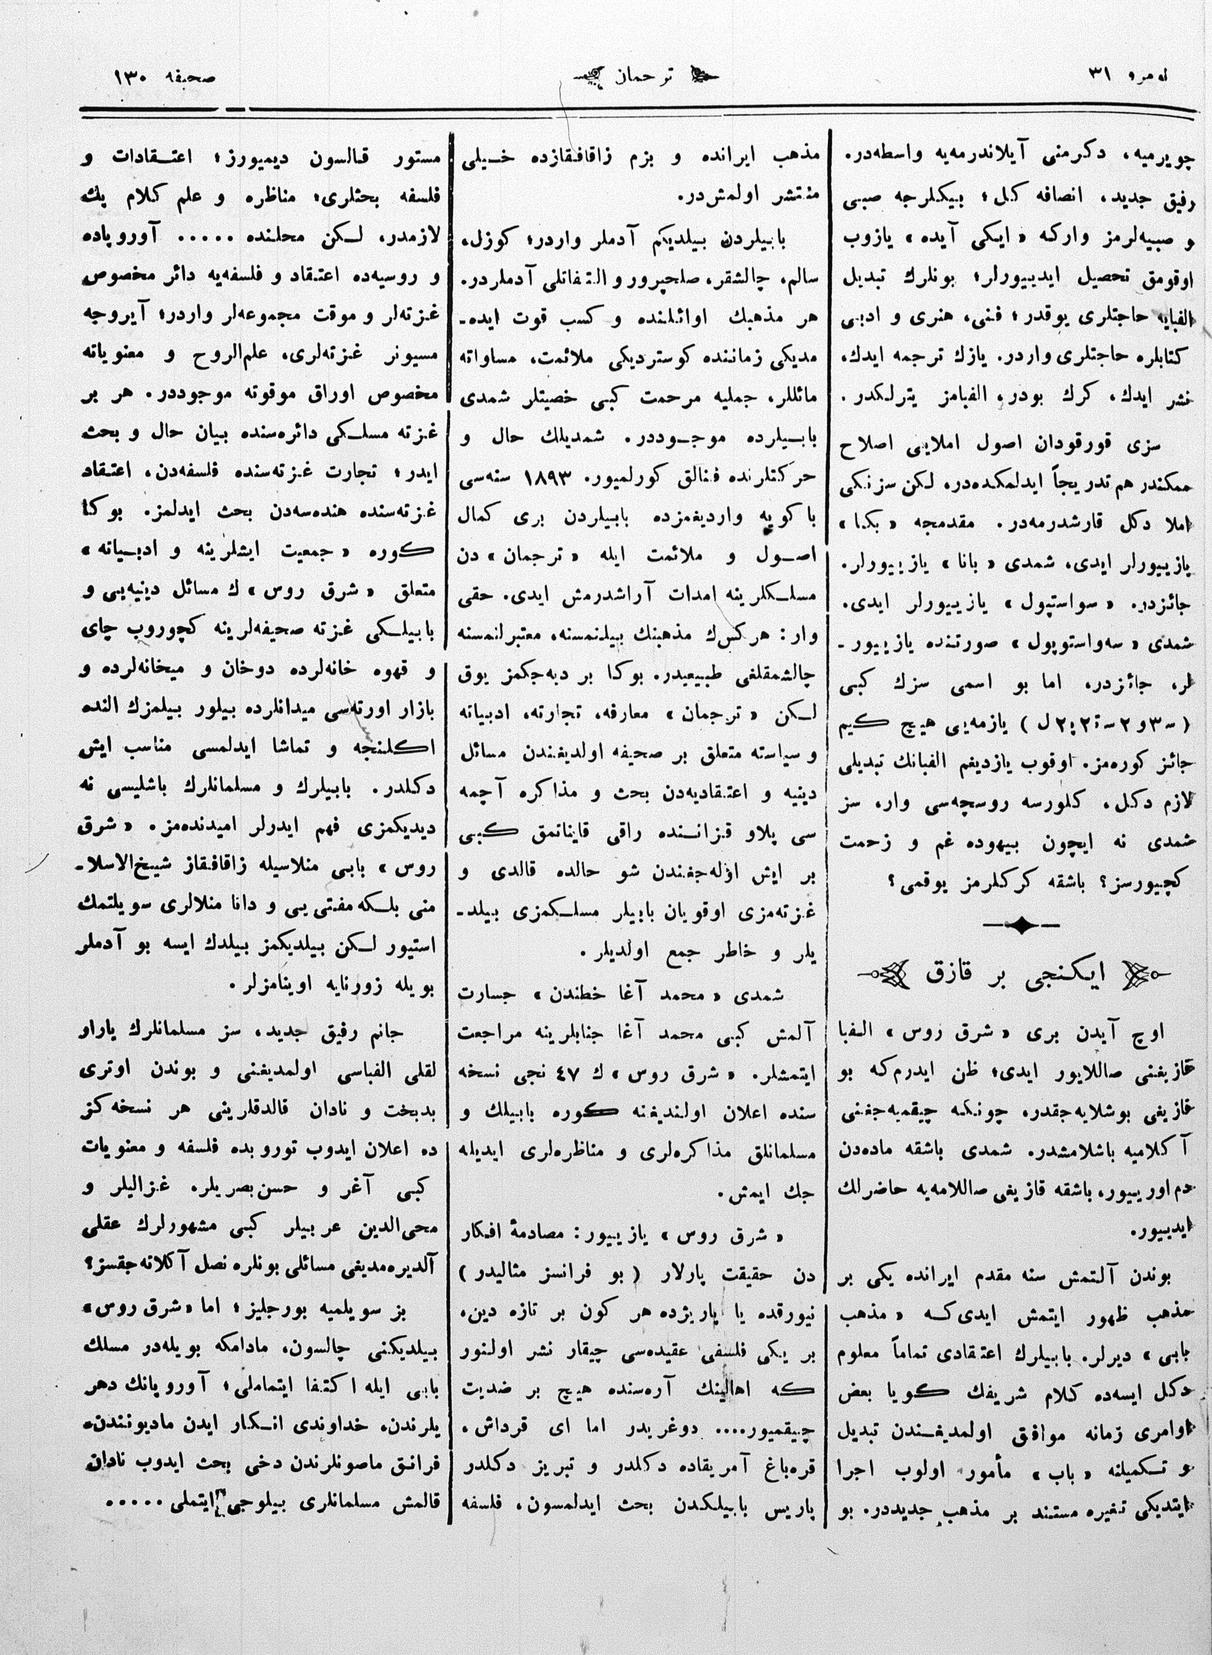 نومرو ٣١
ترجمان
صحیفه ١٣٠
چویرمیه، دكرمنی آیلاندرمه‌یه واسطه‌در.
رفیق جدید، انصافه كل؛ بیكلرجه صبی
و صبیه‌لرمز واركه « ایكی آیده » یازوب
اوقومق تحصیل ایدییورلر؛ بونلرك تبدیل
الفبایه حاجتلری یوقدر؛ فنی، هنری و ادبی
كتابلره حاجتلری واردر. یازك ترجمه ایدك،
نشر ایدك، كرك بودر، الفبامز یترلكدر.
سزی قورقودان اصول املایی اصلاح
ممكندر هم تدریجاً ایدلمكده‌در، لكن سزنكی
املا دكل قارشدرمه‌در. مقدمجه « بكا »
یازییورلر ایدی، شمدی « بانا » یازییورلر.
جائزدر. « سواستپول » یازییورلر ایدی.
شمدی « سه‌واستوپول » صورتنده یازییور-
لر، جائزدر، اما بو اسمی سزك كبی
یازمه‌یی هیچ كیم
جائز كوره‌مز. اوقوب یازدیغم الفبانك تبدیلی
لازم دكل، كلورسه روسچه‌سی وار، سز
شمدی نه ایچون بیهوده غم و زحمت
كچیورسز؟ باشقه كركلرمز یوقمی؟
ایكنجی بر قازق
اوچ آیدن بری « شرق روس » الفبا
قازیغنی صاللایور ایدی؛ ظن ایدرم كه بو
قازیغی بوشلایه‌جقدر. چونكه چیقمیه‌جغنی
آكلامیه باشلامشدر. شمدی باشقه ماده‌دن
دم اورییور، باشقه قازیغی صاللامه‌یه حاضرلك
ایدییور.
بوندن آلتمش سنه مقدم ایرانده یكی بر
مذهب ظهور ایتمش ایدی كه « مذهب
بابی » دیرلر. بابیلرك اعتقادی تماماً معلوم
دكل ایسه‌ده كلام شریفك كویا بعض
اوامری زمانه موافق اولمدیغندن تبدیل
و تكمیلنه « باب » مأمور اولوب اجرا
ایتدیكی تغیره مستند بر مذهب جدیددر. بو
مذهب ایرانده و بزم زاقافقازده خیلی
منتشر اولمش‌در.
بابیلردن بیلدیكم آدملر واردر؛ كوزل،
سالم، چالشقر، صلحپرور و التفاتلی آدملردر.
هر مذهبك اوائلنده و كسب قوت ایده-
مدیكی زماننده كوستردیكی ملائمت، مساواته
مائللر، جملیه مرحمت كبی خصیتلر شمدی
بابیلرده موجوددر. شمدیلك حال و
حركتلرنده فنالق كورلمیور. ١٨٩٣ سنه‌سی
باكویه واردیغمزده بابیلردن بری كمال
اصول و ملائمت ایله « ترجمان » دن
مسلكلرینه امدات آراشدرمش ایدی. حقی
وار: هركس‌ك مذهبنك بیلنمسنه، معتبرلنمسنه
چالشمقلغی طبیعیدر. بوكا بر دیه‌جكمز یوق
لكن « ترجمان » معارفه، تجارته، ادبیاته
و سیاسته متعلق بر صحیفه اولدیغندن مسائل
دینیه و اعتقادیه‌دن بحث و مذاكره آچمه
سی پلاو قزاننده راقی قایناتمق كبی
بر ایش اوله‌جغندن شو حالده قالدی و
غزته‌مزی اوقویان بابیلر مسلكمزی بیلد-
یلر و خاطر جمع اولدیلر.
شمدی « محمد آغا خطندن » جسارت
آلمش كبی محمد آغا جنابلرینه مراجعت
ایتمشلر. « شرق روس » ك ٤٧ نجی نسخه
سنده اعلان اولندیغنه كوره بابیلك و
مسلمانلق مذاكره‌لری و مناظره‌لری ایدیله
جك ایمش.
« شرق روس » یازییور: مصادمهٔ افكار
دن حقیقت پارلار ( بو فرانسز مثالیدر )
نیورقده یا پاریژده هر كون بر تازه دین،
بر یكی فلسفی عقیده‌سی چیقار نشر اولنور
كه اهالینك آره‌سنده هیچ بر ضدیت
چیقمیور.... دوغریدر اما ای قرداش،
قره‌باغ آمریقاده دكلدر و تبریز دكلدر
پاریس بابیلكدن بحث ایدلمسون، فلسفه
مستور قالسون دیمیورز؛ اعتقادات و
فلسفه بحثلری؛ مناظره و علم كلام پك
لازمدر، لكن محلنده ..... آوروپاده
و روسیه‌ده اعتقاد و فلسفه‌یه دائر مخصوص
غزته‌لر و موقت مجموعه‌لر واردر؛ آیروجه
مسیونر غزته‌لری، علم‌الروح و معنویاته
مخصوص اوراق موقوته موجوددر. هر بر
غزته مسلكی دائره‌سنده بیان حال و بحث
ایدر؛ تجارت غزته‌سنده فلسفه‌دن، اعتقاد
غزته‌سنده هندسه‌دن بحث ایدلمز. بوكا
كوره « جمعیت ایشلرینه و ادبیاته »
متعلق « شرق روس » ك مسائل دینیه‌یی و
بابیلكی غزته صحیفه‌لرینه كچوروب چای
و قهوه خانه‌لرده دوخان و میخانه‌لرده و
بازار اورته‌سی میدانلرده بیلور بیلمزك النده
اكلنجه و تماشا ایدلمسی مناسب ایش
دكلدر. بابیلرك و مسلمانلرك باشلیسی نه
دیدیكمزی فهم ایدرلر امیدنده‌مز. « شرق
روس » بابی منلاسیله زاقافقاز شیخ‌الاسلا-
منی بلكه مفتی‌یی و دانا منلالری سویلتمك
استیور لكن بیلدیكمز بیلدك ایسه بو آدملر
بویله زورنایه اوینامزلر.
جانم رفیق جدید، سز مسلمانلرك یاراو
لقلی الفباسی اولمدیغنی و بوندن اوتری
بدبخت و نادان قالدقلرینی هر نسخه‌كز
ده اعلان ایدوب توروبده فلسفه و معنویات
كبی آغر و حسن‌بصریلر، غزالیلر و
محی‌الدین عربیلر كبی مشهورلرك عقلی
آلدیره‌مدیغی مسائلی بونلره نصل آكلاته‌جقسز؟
بز سویلمیه بورجلیز؛ اما « شرق روس »
بیلدیكنی چالسون، مادامكه بویله‌در مسلك
بابی ایله اكتفا ایتماملی؛ آوروپانك دهر
یلرندن، خداوندی انكار ایدن مادیوننندن،
فرانق ماصونلرندن دخی بحث ایدوب نادان
قالمش مسلمانلری بیلوجی ایتملی .....